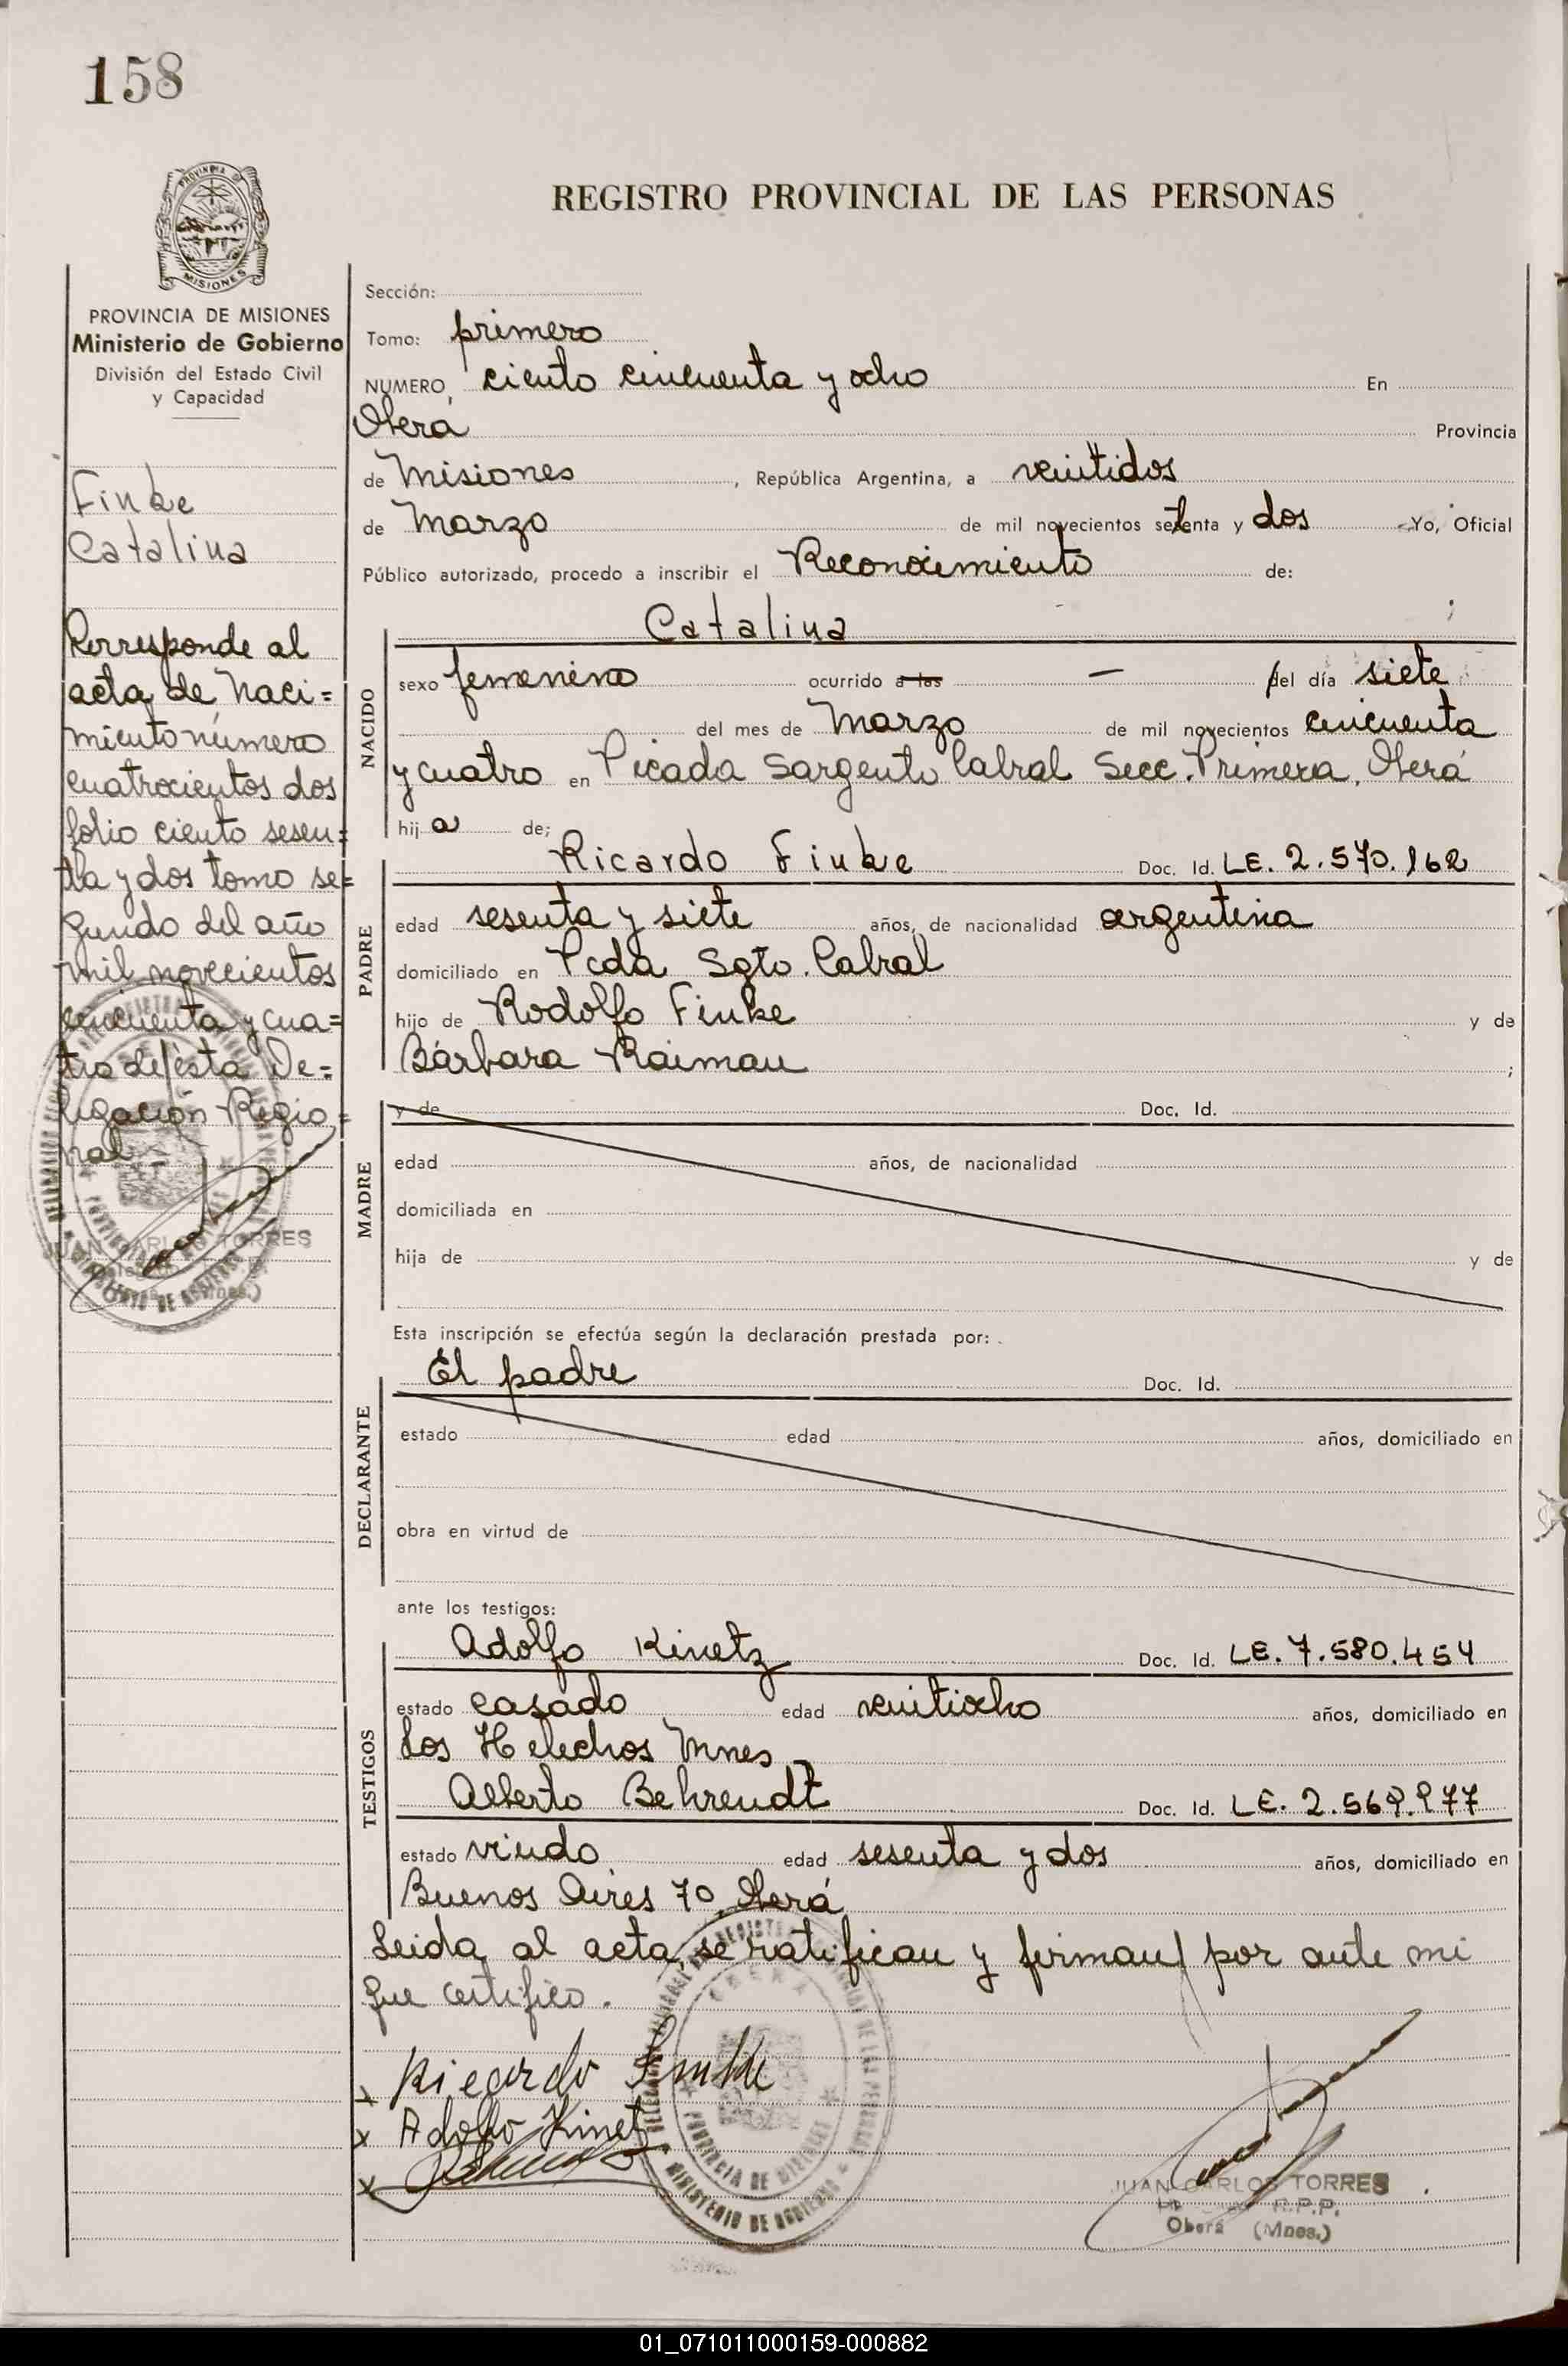 158
PROVINCIA D
MISIONES
REGISTRO PROVINCIAL DE LAS PERSONAS
PROVINCIA DE MISIONES
Ministerio de Gobierno
División del Estado Civil
y Capacidad
Finke
Catalina
Corresponde al
acta de Naci=
miento número
cuatrocientos dos
folio ciento sesen=
ta y dos tomo se=
gundo del año
mil novecientos
cincuenta y cua=
tro de ésta De=
legación Regio=
nal -
JUAN CARLOS TORRES
Sección:
Tomo: primero
NUMERO, ciento cincuenta y ocho En
Oberá Provincia
de Misiones, República Argentina, a veintidos
de Marzo de mil novecientos setenta y dos Yo, Oficial
Público autorizado, procedo a inscribir el Reconocimiento de:
NACIDO
Catalina ;
sexo femenino ocurrido a las — del día siete
del mes de Marzo de mil novecientos cincuenta
y cuatro en Picada Sargento Cabral Secc. Primera, Oberá
hija de;
PADRE
Ricardo Finke Doc. Id. LE. 2.570.162
edad sesenta y siete años, de nacionalidad argentina
domiciliado en Pcda Sgto. Cabral
hijo de Rodolfo Finke y de
Bárbara Raiman ;
MADRE
y de Doc. Id.
edad años, de nacionalidad
domiciliada en
hija de y de
Esta inscripción se efectúa según la declaración prestada por:
DECLARANTE
El padre Doc. Id.
estado edad años, domiciliado en
obra en virtud de
ante los testigos:
TESTIGOS
Adolfo Kinetz Doc. Id. LE. 7.580.454
estado casado edad veintiocho años, domiciliado en
Los Helechos Mnes
Alberto Behrendt Doc. Id. LE.
estado viudo edad sesenta y dos años, domiciliado en
Buenos Aires 70, Oberá
Leida al acta, se ratifican y firman por ante mi
que certifico.
x Ricardo Finke
x Adolfo Kinetz
x
PROVINCIA DE MISIONES
MINISTERIO DE GOBIERNO
JUAN CARLOS TORRES
R.P.P.
Oberá (Mnes.)
01_071011000159-000882